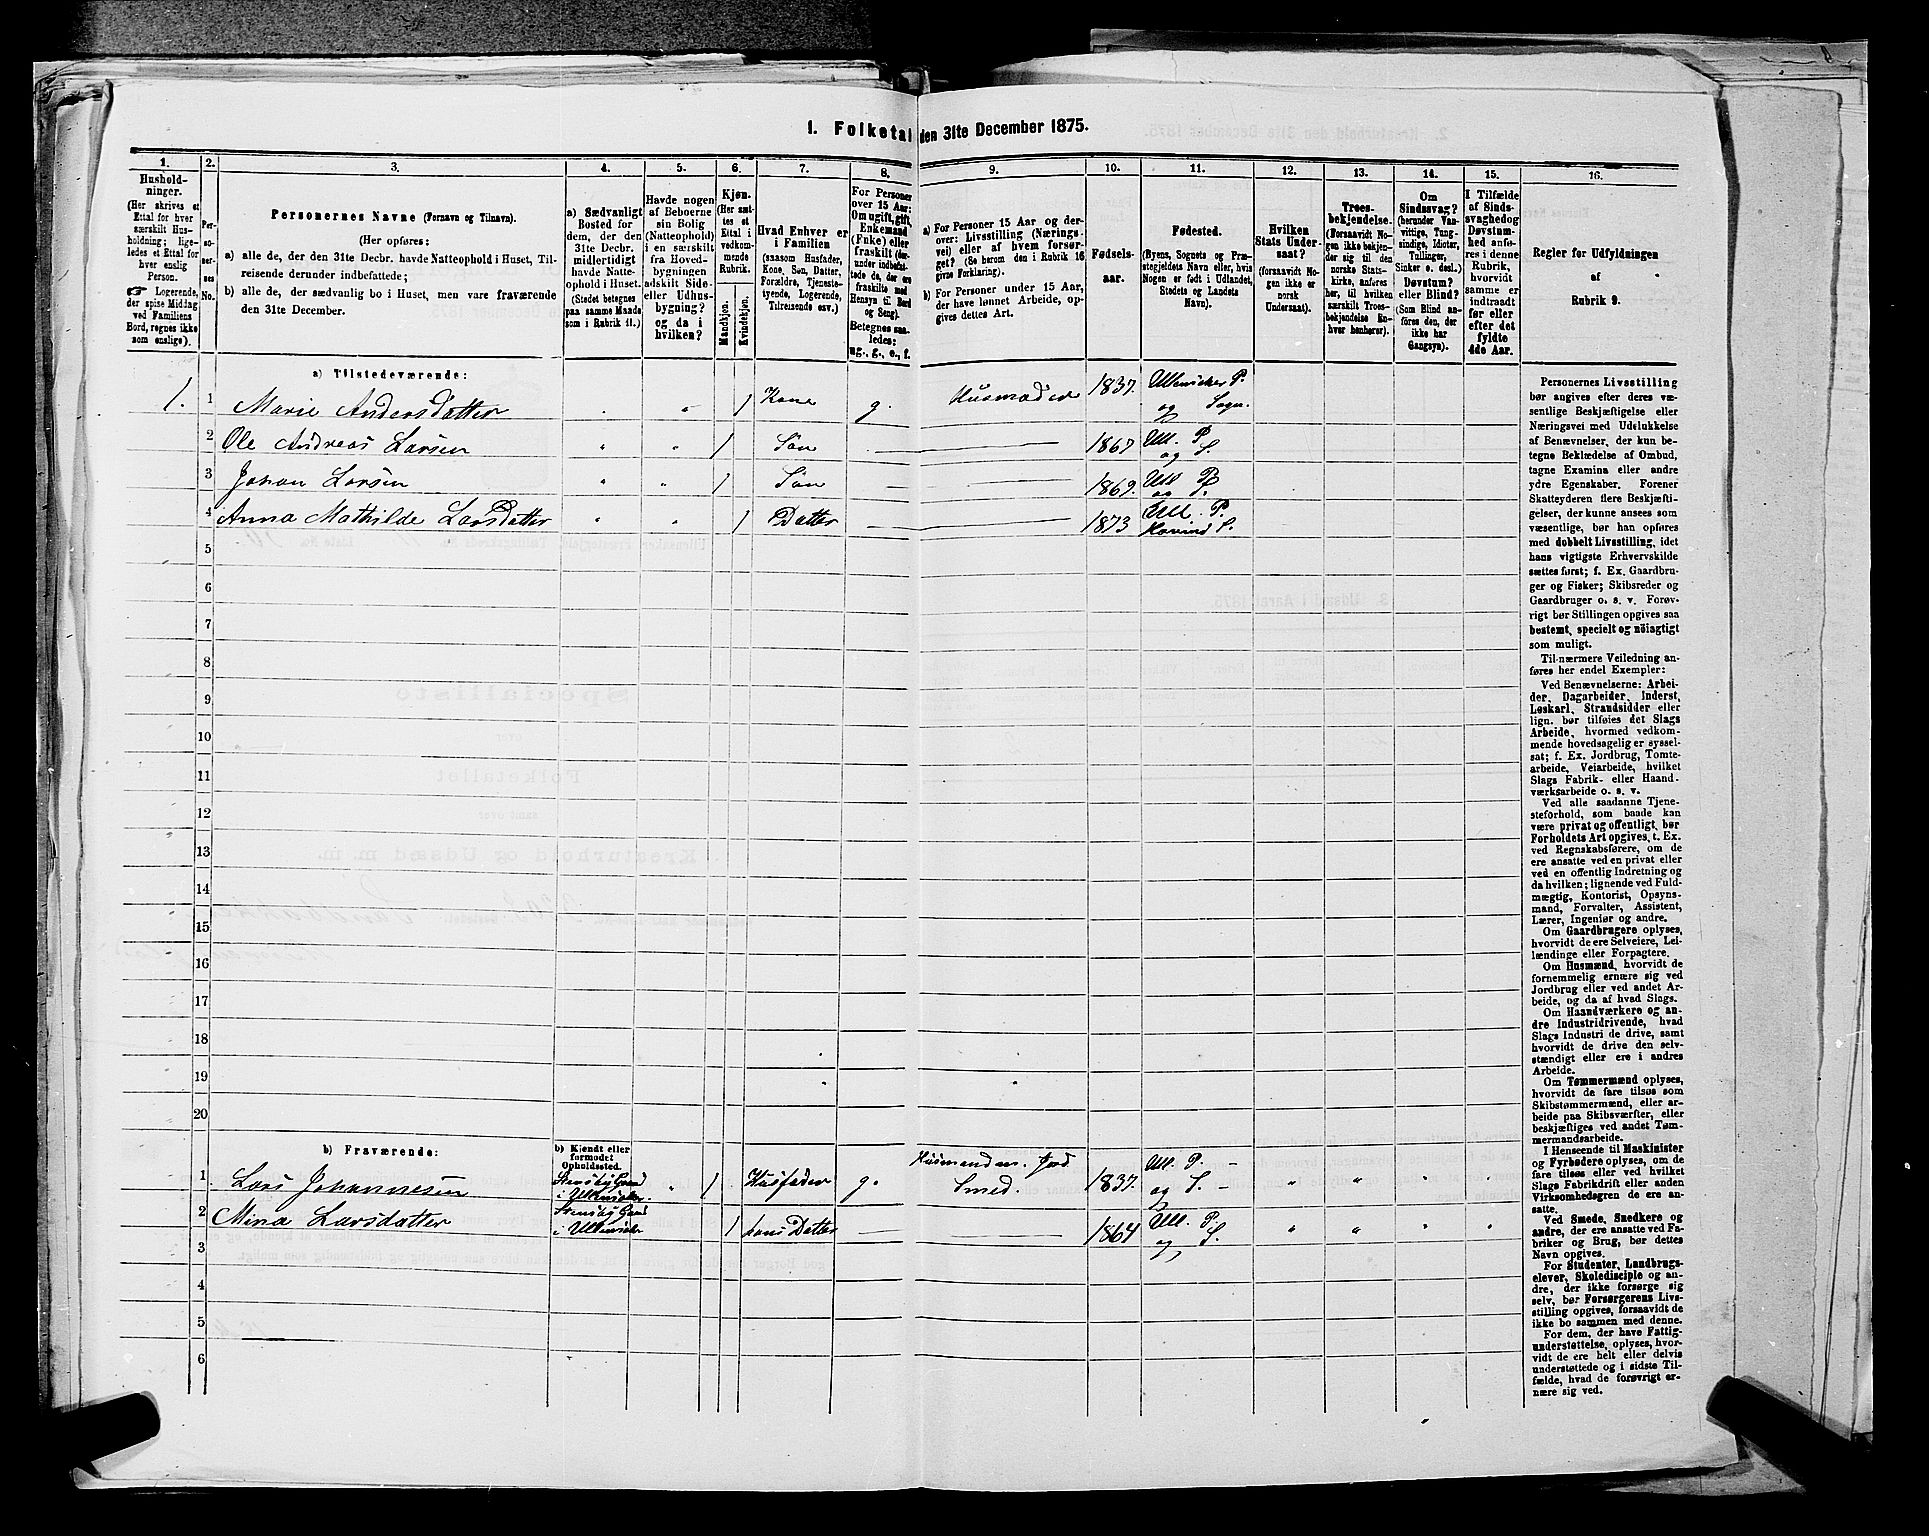 1. Folketal den 31te December 1875.
1. 2. 3. 4. 5. 6. 7. 8. 9. 10. 11. 12. 13. 14. 15. 16.
Hushold-
ninger.
(Her skrives et
Ettal for hver
særskilt Hus-
holdning; lige-
ledes et Ettal for
hver enslig
Person.
☞ Logerende,
der spise Middag
ved Familiens
Bord, regnes ikke
som enslige).
Per-
so-
ner-
nes
No.
Personernes Navne (Fornavn og Tilnavn).
(Her opføres:
a) alle de, der den 31te Decbr. havde Natteophold i Huset, Til-
reisende derunder indbefattede;
b) alle de, der sædvanlig bo i Huset, men vare fraværende
den 31te December.
a) Sædvanligt
Bosted for
dem, der den
31te Decbr.
midlertidigt
havde Natte-
ophold i Huset.
(Stedet betegnes
paa samme Maade
som i Rubrik 11.)
Havde nogen
af Beboerne
sin Bolig
(Natteophold)
i en særskilt
fra Hoved-
bygningen
adskilt Side-
eller Udhus-
bygning?
og da i
hvilken?
Kjøn.
(Her sæt-
tes et
Ettal i
vedkom-
mende
Rubrik.
Mandkjøn.
Kvindekjøn.
Hvad Enhver er
i Familien
(saasom Husfader,
Kone, Søn, Datter,
Forældre, Tjeneste-
tyende, Logerende,
Tilreisende osv.)
For Personer
over 15 Aar:
Om ugift, gift,
Enkemand
(Enke) eller
fraskilt (her-
under indbefat-
tede de, der ere
fraskilte med
Hensyn til Bord
og Seng).
Betegnes saa-
ledes:
ug., g., e., f.
a) For Personer 15 Aar og der-
over: Livsstilling (Nærings-
vei) eller af hvem forsør-
get? (Se herom den i Rubrik 16
givne Forklaring).
b) For Personer under 15 Aar,
der have lønnet Arbeide, op-
gives dettes Art.
Fødsels-
aar.
Fødested.
(Byens, Sognets og Præ-
stegjeldets Navn eller, hvis
Nogen er født i Udlandet,
Stedets og Landets
Navn).
Hvilken
Stats Under-
saat?
(forsaavidt No-
gen ikke er
norsk
Undersaat).
Troes-
bekjendelse.
(Forsaavidt No-
gen ikke bekjen-
der sig til den
norske Stats-
kirke, anføres
her, til hvilken
særskilt Troes-
bekjendelse En-
hver henhører).
Om
Sindssvag?
(herunder Van-
vittige, Tung-
sindige, Idioter,
Tullinger,
Sinker o. desl.)
Døvstum?
eller Blind?
(Som Blind an-
føres den, der
ikke har
Gangsyn).
I Tilfælde
af Sinds-
svaghed og
Døvstum-
hed anfø-
res i denne
Rubrik,
hvorvidt
samme er
indtraadt
før eller
efter det
fyldte
4de Aar.
Regler for Udfyldningen
af
Rubrik 9.
a) Tilstedeværende:
1. 1 Marie Andersdatter 1 Kone g. Husmoder 1837. Ullensaker P. og Sogn.
2 Ole Andreas Larsen 1 Søn 1867 Ull. P. og S.
3 Johan Larsen 1 Søn 1869. Ull P. og
4 Anna Mathilde Larsdatter 1 Datter 1873 Ull. P. Hovind S.
5
6
7
8
9
10
11
12
13
14
15
16
17
18
19
20
b) Fraværende:
b) Kjendt eller
formodet
Opholdssted.
1. Lars Johannesen i Ullensaker. 1 Husfader g. Husmand m. Jord Smed. 1837. Ull. P. og S.
2 Mina Larsdatter i Ullensaker 1 hans Datter 1864 Ull. P. og S.
3
4
5
6
Personernes Livsstilling
bør angives efter deres væ-
sentlige Beskjæftigelse eller
Næringsvei med Udelukkelse
af Benævnelser, der kun be-
tegne Beklædelse af Ombud,
tagne Examina eller andre
ydre Egenskaber. Forener
Skatteyderen flere Beskjæfti-
gelser, der kunne ansees som
væsentlige, bør han opføres
med dobbelt Livsstilling, idet
hans vigtigste Erhvervskilde
sættes først; f. Ex. Gaardbru-
ger og Fisker; Skibsreder og
Gaardbruger o. s. v. Forøv-
rigt bør Stillingen opgives saa
bestemt, specielt og nøiagtigt
som muligt.
Til nærmere Veiledning an-
føres her endel Exempler:
Ved Benævnelserne: Arbei-
der, Dagarbeider, Inderst,
Løskarl, Strandsidder eller
lign. bør tilføies det Slags
Arbeide, hvormed vedkom-
mende hovedsagelig er syssel-
sat; f. Ex. Jordbrug, Tomte-
arbeide, Veiarbeide, hvilket
Slags Fabrik- eller Haand-
værksarbeide o. s. v.
Ved alle saadanne Tjene-
steforhold, som baade kan
være privat og offentligt, bør
Forholdets Art opgives, t. Ex.
ved Regnskabsførere, om de
ere ansatte ved en privat eller
ved en offentlig Indretning og
da hvilken; lignende ved Fuld-
mægtig, Kontorist, Opsyns-
mand, Forvalter, Assistent,
Lærer, Ingeniør og andre.
Om Gaardbrugere oplyses,
hvorvidt de ere Selveiere, Lei-
lændinge eller Forpagtere.
Om Husmænd, hvorvidt de
fornemmelig ernære sig ved
Jordbrug eller ved andet Ar-
beide, og da af hvad Slags.
Om Haandværkere og an-
dre Industridrivende, hvad
Slags Industri de drive, samt
hvorvidt de drive den selv-
stændigt eller ere i andres
Arbeide.
Om Tømmermænd oplyses,
hvorvidt de fare tilsøs som
Skibstømmermænd, eller ar-
beide paa Skibsværfter, eller
beskjæftiges ved andet Tøm-
mermandsarbeide.
I Henseende til Maskinister
og Fyrbødere oplyses, om de
fare tilsøs eller ved hvilket
Slags Fabrikdrift eller anden
Virksomhed de ere an-
satte.
Ved Smede, Snedkere og
andre, der ere ansatte ved Fa-
briker og Brug, bør dettes
Navn opgives.
For Studenter, Landbrugs-
elever, Skoledisciple og an-
dre, der ikke forsørge sig
selv, bør Forsørgerens Livs-
stilling opgives, forsaavidt de
ikke bo sammen med denne.
For dem, der have Fattig-
understøttelse, oplyses, hvor-
vidt de ere helt eller delvis
understøttede og i sidste Til-
fælde, hvad de forøvrigt er-
nære sig ved.